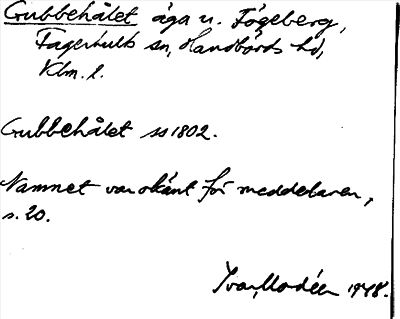 Gubbehålet äga u. Fågeberg,
Fagerhults sn, Handbörds hd,
Klm. l.
Gubbehålet ss 1802.
Namnet var okänt för meddelaren,
s. 20.
Ivar Modéer 1948.